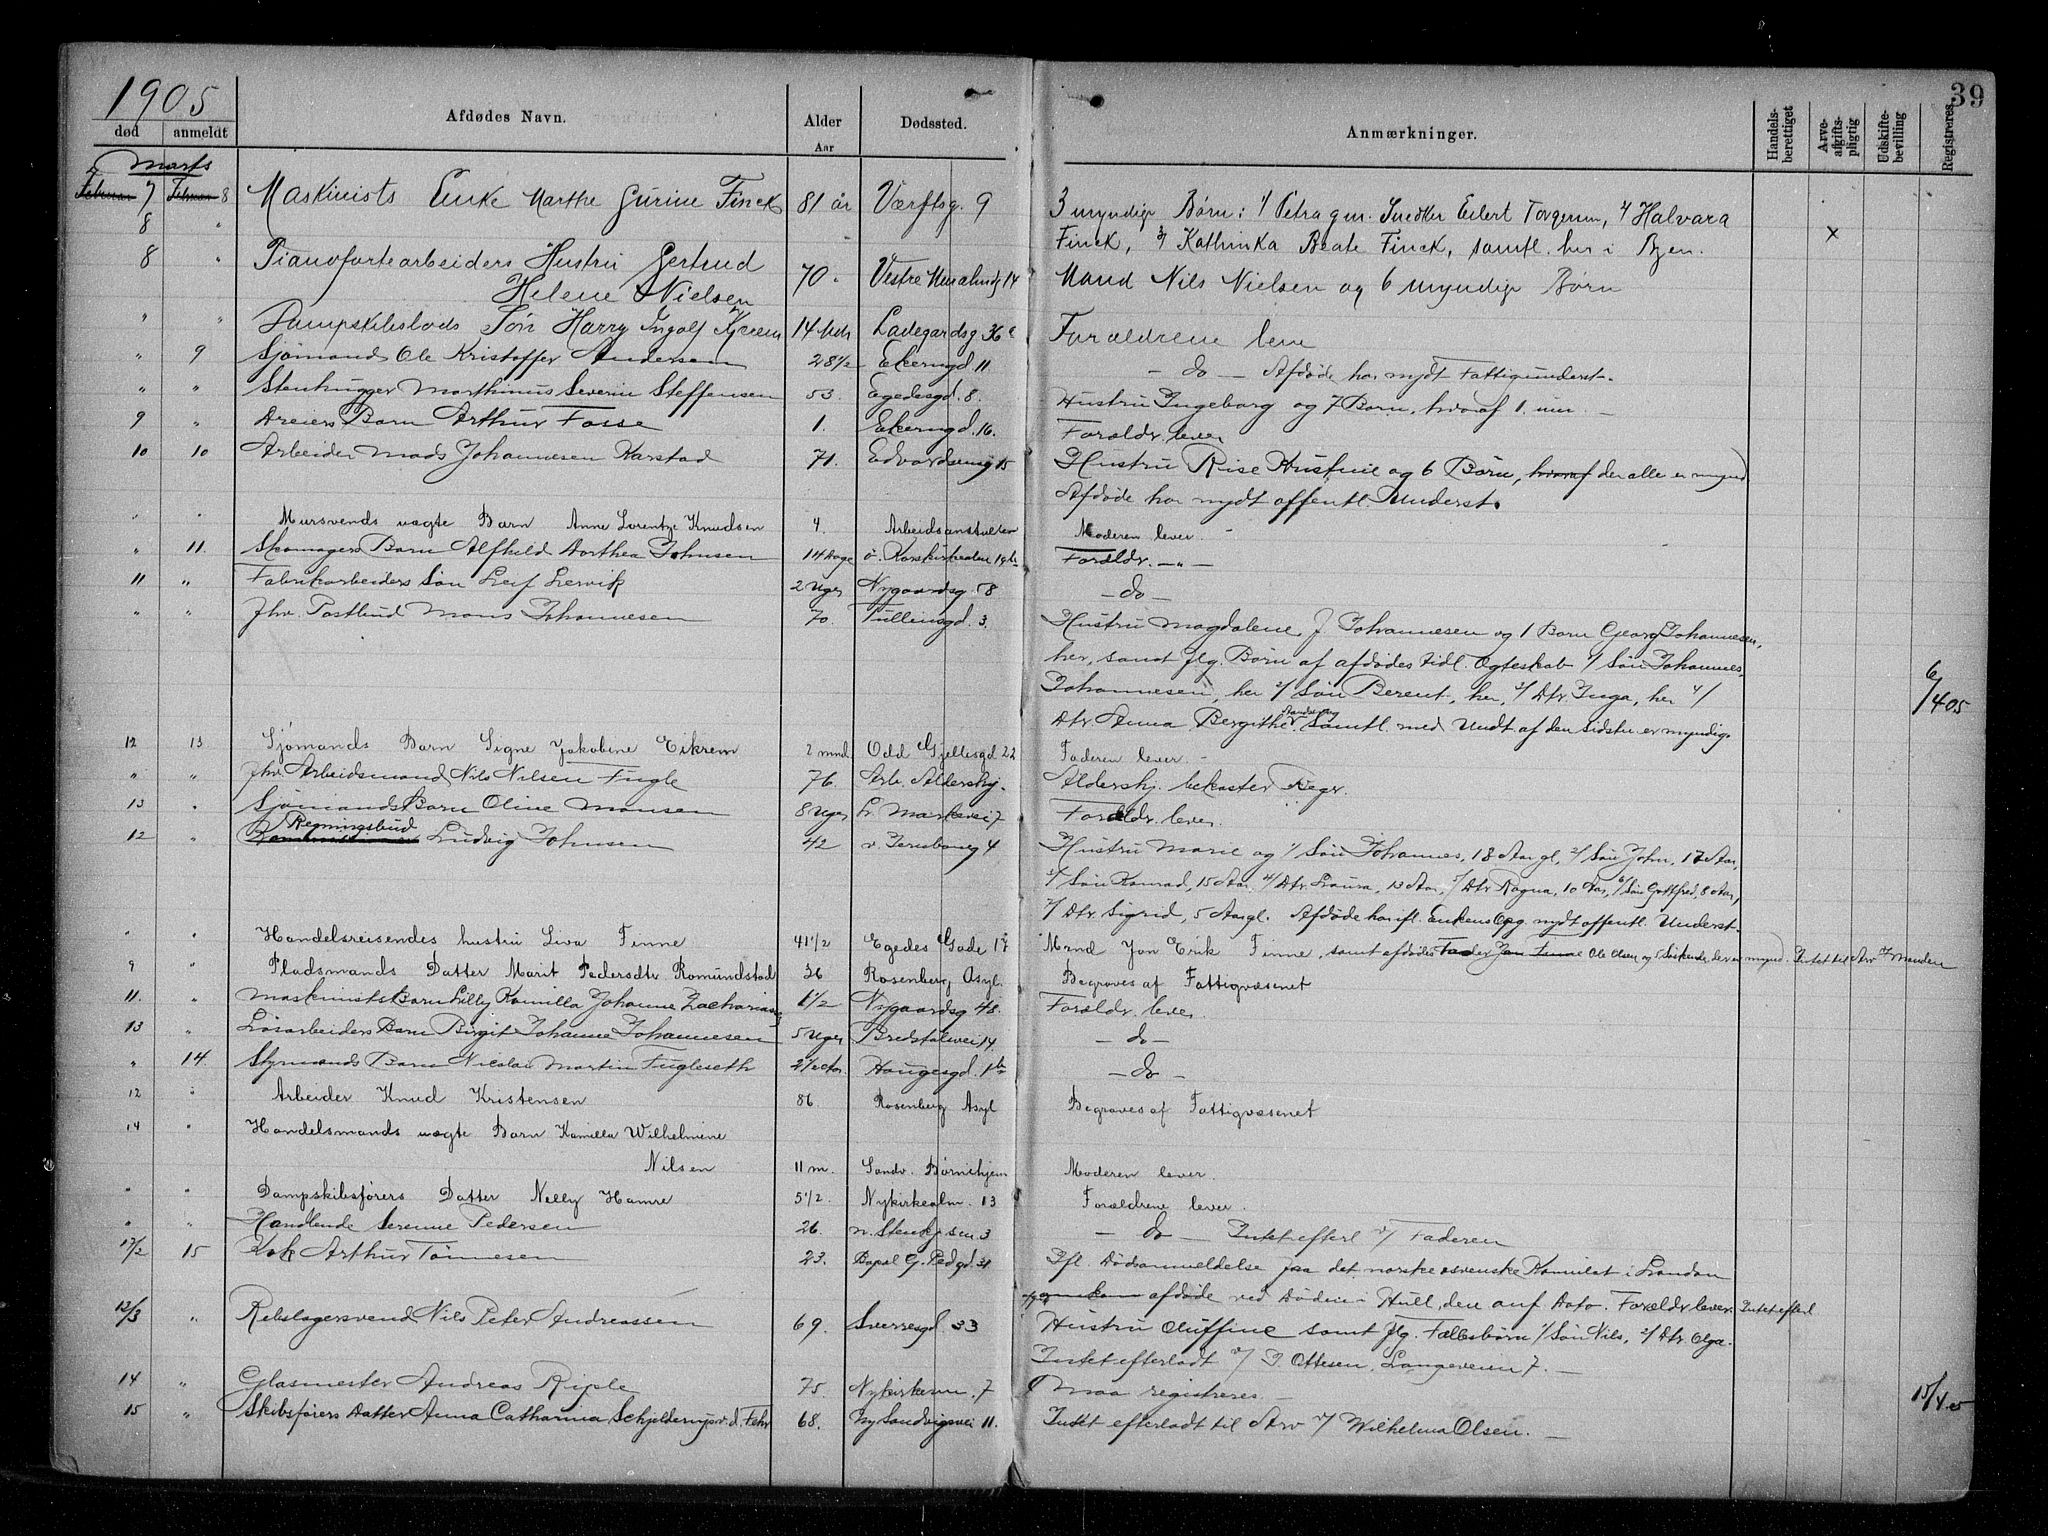 1905
39
død anmeldt Afdødes Navn. Alder Aar Dødssted. Anmærkninger. Handels-berettiget Arve-afgifts-pligtig Udskifte-bevilling Registreres.
Marts
Februar 7 Februar 8 Maskinists Enke Marthe Gurine Finck 81 år Værftsg. 9 3 myndige Børn: 1/ Petra gm. Snedker Eilert Torgersen, 2/ Halvara
8 " Finck, 3/ Kathinka Beate Finck, samtl. her i Byen. x
8 " Pianofortearbeiders Hustru Gertrud
Helene Nielsen 70 " Vestre Muralmg 14 Mand Nils Nielsen og 6 myndige Børn
" " Dampskibslods Søn Harry Ingolf 14 Mdr Ladegardsg. 36 Forældrene leve
" 9 Sjømand Ole Kristoffer Andersen 28 1/2 Ekerngd 11 - do - Afdøde har nydt Fattigunderst.
" " Stenhugger Marthinus Severin Steffensen 53. Egedesgd. 8. Hustru Ingeborg og 7 Børn, hvoraf 1 um. -
9 " Dreiers Barn Arthur Fosse 1. Ekerngd. 16. Forældr. lever
10 10 Arbeider Mads Johannesen Karstad 71. Edvardseng 15 Hustru og 6 Børn, hvoraf der alle er mynd
Afdøde har nydt offentl. Underst.
" " Mursvends uægte Barn Anne Lorentze Knudsen 4 Arbeidsanstalten Moderen lever. -
" 11. Skomagers Barn Alfhild Dorthea Johnsen 14 Dage ö. Korskirkealm 19 Forældr. - " -
11 " Fabrikarbeiders Søn Leif Lervik 2 Uger Nygaardsg 58 - do -
" " Fhv. Postbud Mons Johannesen 70. Tullinsgd. 3. Hustru Magdalene J. Johannesen og 1 Barn Georg Johannesen,
her, samt flg. Børn af afdødes tidl. Ægteskab 1/ Søn Johannes
Johannesen, her 2/ Søn Berent, her, 3/ Dtr Inga, her 4/ 6/4 05
Dtr. Anna Bergithe. Samtl. med Undt af den sidste er myndig.
12 13 Sjømands Barn Signe Jakobine Eikrem 2 mnd Odd Gjellesgd 22 Faderen lever. -
" " Fhv. Arbeidsmand Nils Nilsen Fugle 76. Arb. Aldershj. Aldershj. bekoster Begr.
13 " Sjømands Barn Oline Monsen 8 Uger Lr Markevei 7 Forældr. lever.
Regningsbud
12 " Ludvig Johnsen 42 v. Torvbang 4 Hustru Marie og 1/ Søn Johannes, 18 Aar gl, 2/ Søn John, 17 Aar,
3/ Søn Konrad, 15 Aar, 4/ Dtr Laura, 13 Aar, 5/ Dtr Ragna, 10 Aar, 6/ Søn Gottfred, 8 Aar,
7/ Dtr Sigrid, 5 Aar gl. Afdøde har ifl. Enkens Opg nydt offentl. Underst.
" " Handelsreisendes hustru Liva Finne 41 1/2 Egedes Gade 17 Mand Jon Erik Finne, samt afdødes Fader Jon Finne Ole Olsen og 5 Søskende, der er mynd. Intet til Arv v/ Manden
9 " Pladsmands Datter Marit Pedersdtr Romundstad 36 Rosenberg Asyl. Begraves af Fattigvæsenet
11. " Maskinists Barn Lilly Kamilla Johanne Zachariasen 1 1/2 Nygaardsg 48. Forældr. lever.
13 " Løsarbeiders Barn Birgit Johanne Johannesen 5 Uger Bredstølvei 14. - do -
" 14. Styrmands Barn Nicolai Martin Fugleseth 2 1/2 Aar. Haugesgd. 1b - do -
12 " Arbeider Knud Kristensen 86 Rosenberg Asyl Begraves af Fattigvæsenet
14 " Handelsmands uægte Barn Kamilla Wilhelmine
Nilsen 11 m. Sandv. Børnehjem Moderen lever.
" " Dampskibsførers Datter Nelly Hamre 5 1/2. Nykirkealm. 13 Forældrene lever.
" " Handlende Serenne Pedersen 26. n. Stenkjsen. 3 - do - Intet efterl v/ Faderen
17/2 15 Kok Arthur Tønnesen 23. Bapsl G. Ped gd. 31 Ifl. Dødsanmeldelse fra det norske svenske Konsulat i London
afdøde ved Døden i Hull, den anf Dato. Forældr lever. Intet efterl
12/3 " Rebslagersvend Nils Peter Andreassen 69. Sverresgd. 33 Hustru Oluffine samt flg. Fællesbørn 1/ Søn Nils, 2/ Dtr Olga.
Intet efterladt v/ I. Ottesen, Langeveien 7. -
14 " Glasmester Andreas Riple 75. Nykirkealm. 7 Maa registreres. - 15/4 05
15 " Skibsførers Datter Anna Catharina Schjelderup v. d. Fehr 68. Ny Sandvigsvei 11. Intet efterladt til Arv v/ Wilhelma Olsen. -